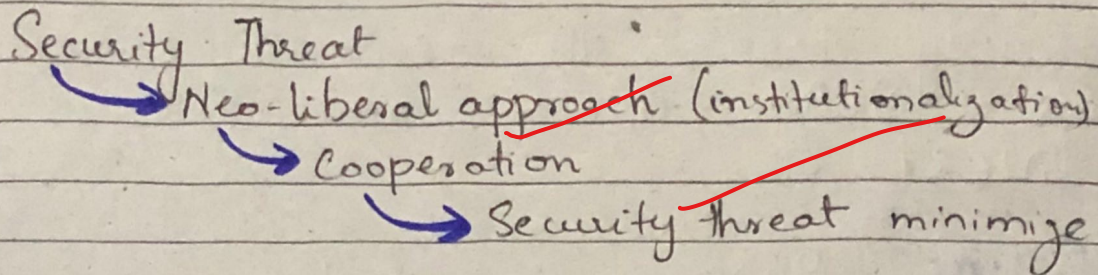 Security Threat
Neo-liberal approach (institutionalization)
Cooperation
Security threat minimize